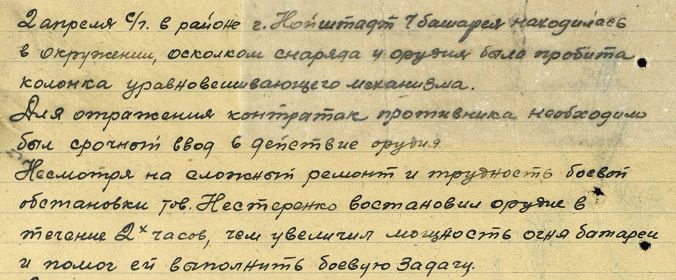 2 апреля с/г. в районе г. Нойштадт 7 батарея находилась
в окружении, осколком снаряда у орудия была пробита
колонка уравновешивающего механизма.
Для отражения контратак противника необходимо
был срочный ввод в действие орудия
Несмотря на сложный ремонт и трудность боевой
обстановки тов. Нестеренко востановил орудие в
течение 2х часов, чем увеличил мощность огня батареи
и помог ей выполнить боевую задачу.